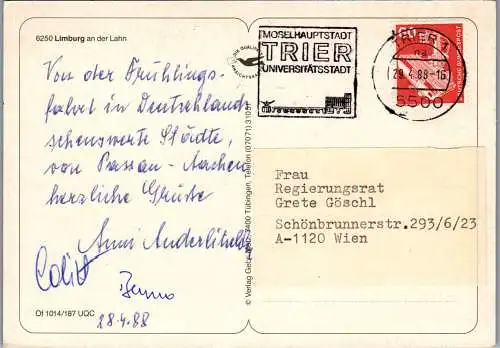 6250 Limburg an der Lahn
Von der Frühlings-
fahrt in Deutschland
sehenswerte Städte,
von Passau - Aachen
herzliche Grüße
Anni
Benno
28.4.88
Of 1014/187 UQC
© Verlag Gebr. 7400 Tübingen, Telefon (07071)
MOSELHAUPTSTADT
TRIER
UNIVERSITÄTSSTADT
TRIER 1
28.4.88-16
5500
DEUTSCHE BUNDESPOST
Frau
Regierungsrat
Grete Göschl
Schönbrunnerstr.293/6/23
A-1120 Wien